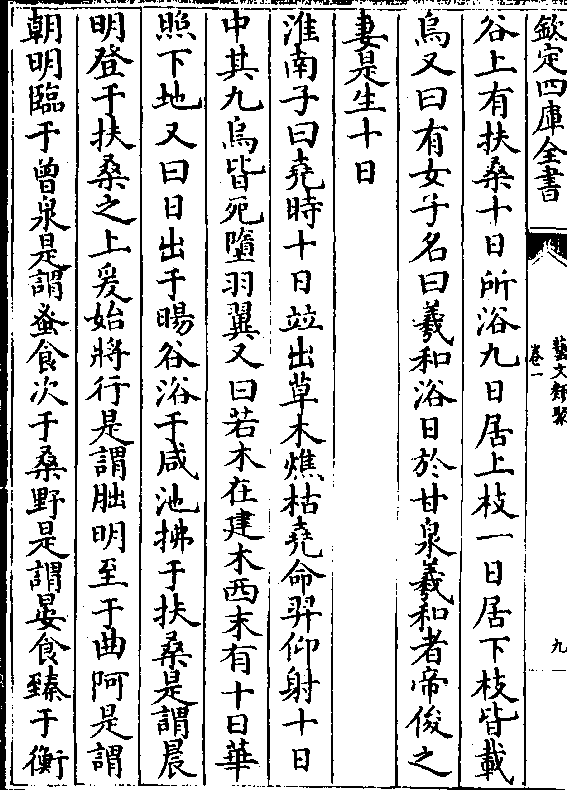 欽定四庫全書
藝文類聚
卷一
九
谷上有扶桑十日所浴九日居上枝一日居下枝皆載
烏又曰有女子名曰羲和浴日於甘泉羲和者帝俊之
妻是生十日
淮南子曰堯時十日竝出草木燋枯堯命羿仰射十日
中其九烏皆死墮羽翼又曰若木在建木西末有十日華
照下地又曰日出于暘谷浴于咸池拂于扶桑是謂晨
明登于扶桑之上爰始將行是謂朏明至于曲阿是謂
朝明臨于曾泉是謂蚤食次于桑野是謂晏食臻于衡